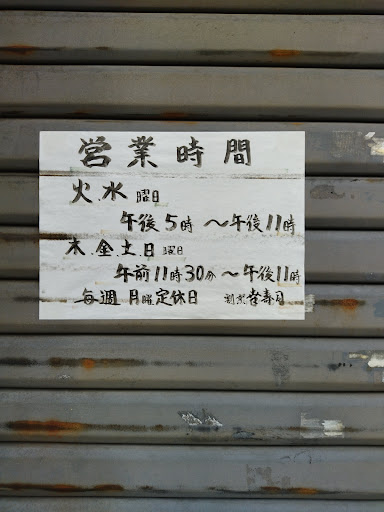 営業時間
火.水 曜日
午後5時 〜午後11時
木.金.土.日 曜日
午前11時30分〜午後11時
毎週 月曜定休日 割烹 幸寿司